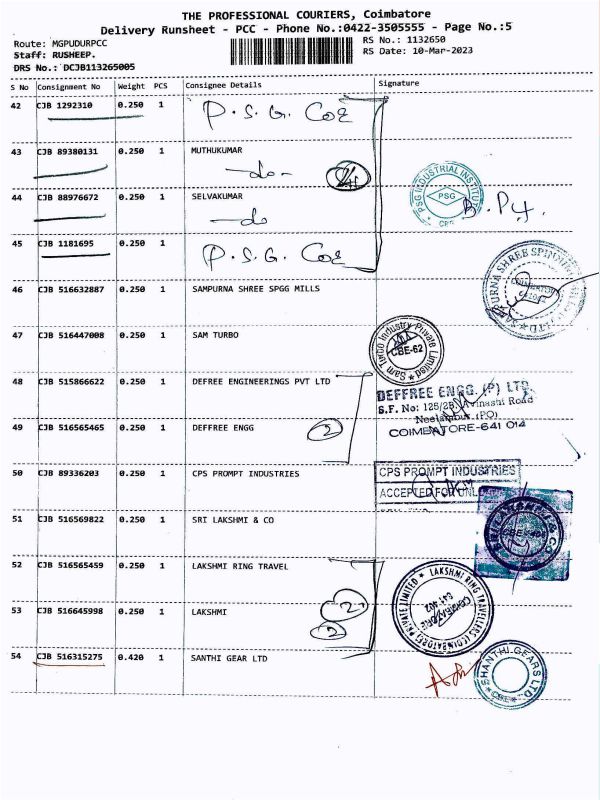 THE PROFESSIONAL COURIERS, Coimbatore
Delivery Runsheet - PCC - Phone No.:0422-3505555 - Page No.:5
Route: MGPUDURPCC
RS No.: 1132650
Staff: RUSHEEP.
RS Date: 10-Mar-2023
DRS No.: DCJB113265005
S No Consignment No Weight PCS Consignee Details Signature
42 CJB 1292310 0.250 1 P.S.G. CoE
43 CJB 89380131 0.250 1 MUTHUKUMAR
-do-
PSG INDUSTRIAL INSTITUTE
PSG
44 CJB 88976672 0.250 1 SELVAKUMAR
-do
45 CJB 1181695 0.250 1 P.S.G. CoE
SAMPURNA SHREE SPINNING
46 CJB 516632887 0.250 1 SAMPURNA SHREE SPGG MILLS
47 CJB 516447008 0.250 1 SAM TURBO
Sam Turbo Industry Private Limited
CBE-62
48 CJB 515866622 0.250 1 DEFREE ENGINEERINGS PVT LTD
DEFFREE ENGG. (P) LTD
S.F. No: 125/2B, Avinashi Road
Neelambur (PO)
COIMBATORE-641 014
49 CJB 516565465 0.250 1 DEFFREE ENGG 2
50 CJB 89336203 0.250 1 CPS PROMPT INDUSTRIES
CPS PROMPT INDUSTRIES
ACCEPTED FOR
51 CJB 516569822 0.250 1 SRI LAKSHMI & CO
52 CJB 516565459 0.250 1 LAKSHMI RING TRAVEL
LAKSHMI RING TRAVELLERS (COIMBATORE) PRIVATE LIMITED
COIMBATORE
641 402
53 CJB 516645998 0.250 1 LAKSHMI 2
2
54 CJB 516315275 0.420 1 SANTHI GEAR LTD
SHANTHI GEARS LTD.
CBE